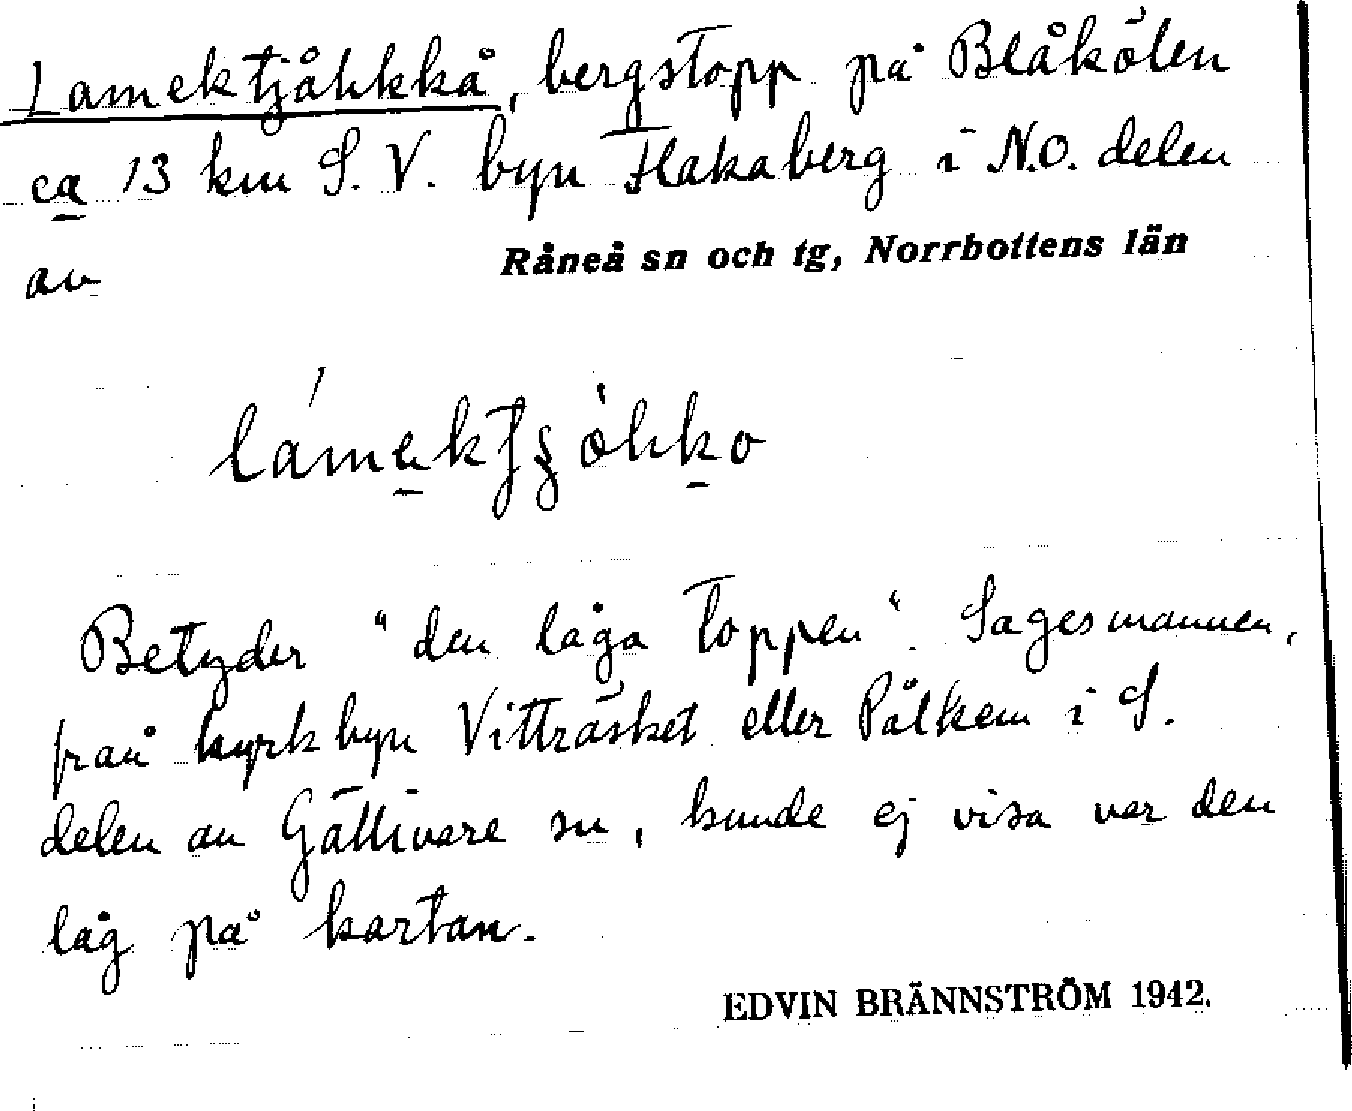 Lamektjåhkkå, bergstopp på Blåkölen
ca 13 km S.V. byn Flakaberg i N.O. delen
av Råneå sn och tg, Norrbottens län
Betyder "den låga toppen". Sagesmannen,
från kyrkbyn Vitträsket eller Pålkem i S.
delen av Gällivare sn, kunde ej visa var den
låg på kartan.
EDVIN BRÄNNSTRÖM 1942.